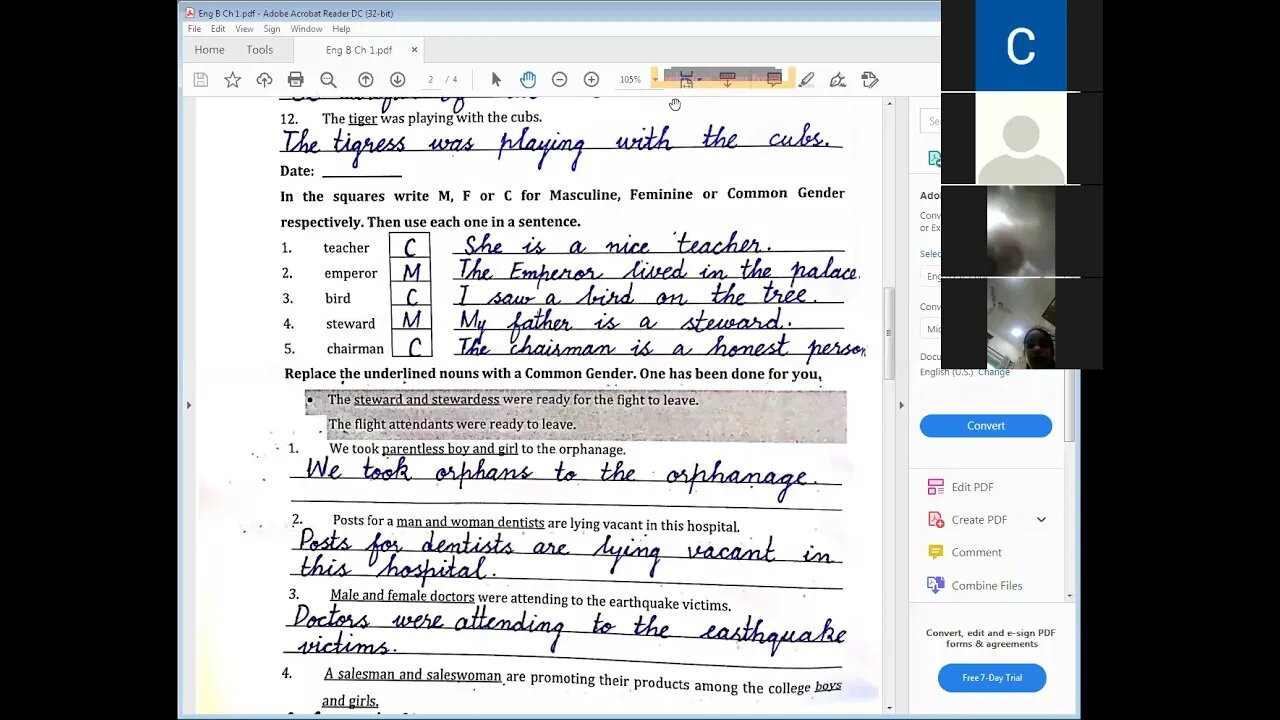 Eng B Ch 1.pdf - Adobe Acrobat Reader DC (32-bit)
File Edit View Sign Window Help
Home Tools Eng B Ch 1.pdf ×
2 / 4 105%
12. The tiger was playing with the cubs.
The tigress was playing with the cubs.
Date: ________
In the squares write M, F or C for Masculine, Feminine or Common Gender
respectively. Then use each one in a sentence.
1. teacher C She is a nice teacher.
2. emperor M The Emperor lived in the palace.
3. bird C I saw a bird on the tree.
4. steward M My father is a steward.
5. chairman C The chairman is a honest person
Replace the underlined nouns with a Common Gender. One has been done for you.
• The steward and stewardess were ready for the fight to leave.
The flight attendants were ready to leave.
1. We took parentless boy and girl to the orphanage.
We took orphans to the orphanage.
2. Posts for a man and woman dentists are lying vacant in this hospital.
Posts for dentists are lying vacant in
this hospital.
3. Male and female doctors were attending to the earthquake victims.
Doctors were attending to the earthquake
victims.
4. A salesman and saleswoman are promoting their products among the college boys
and girls.
C
Sea
Ado
Conv
or Ex
Selec
Eng
Conv
Mic
Docu
English (U.S.) Change
Convert
Edit PDF
Create PDF
Comment
Combine Files
Convert, edit and e-sign PDF
forms & agreements
Free 7-Day Trial